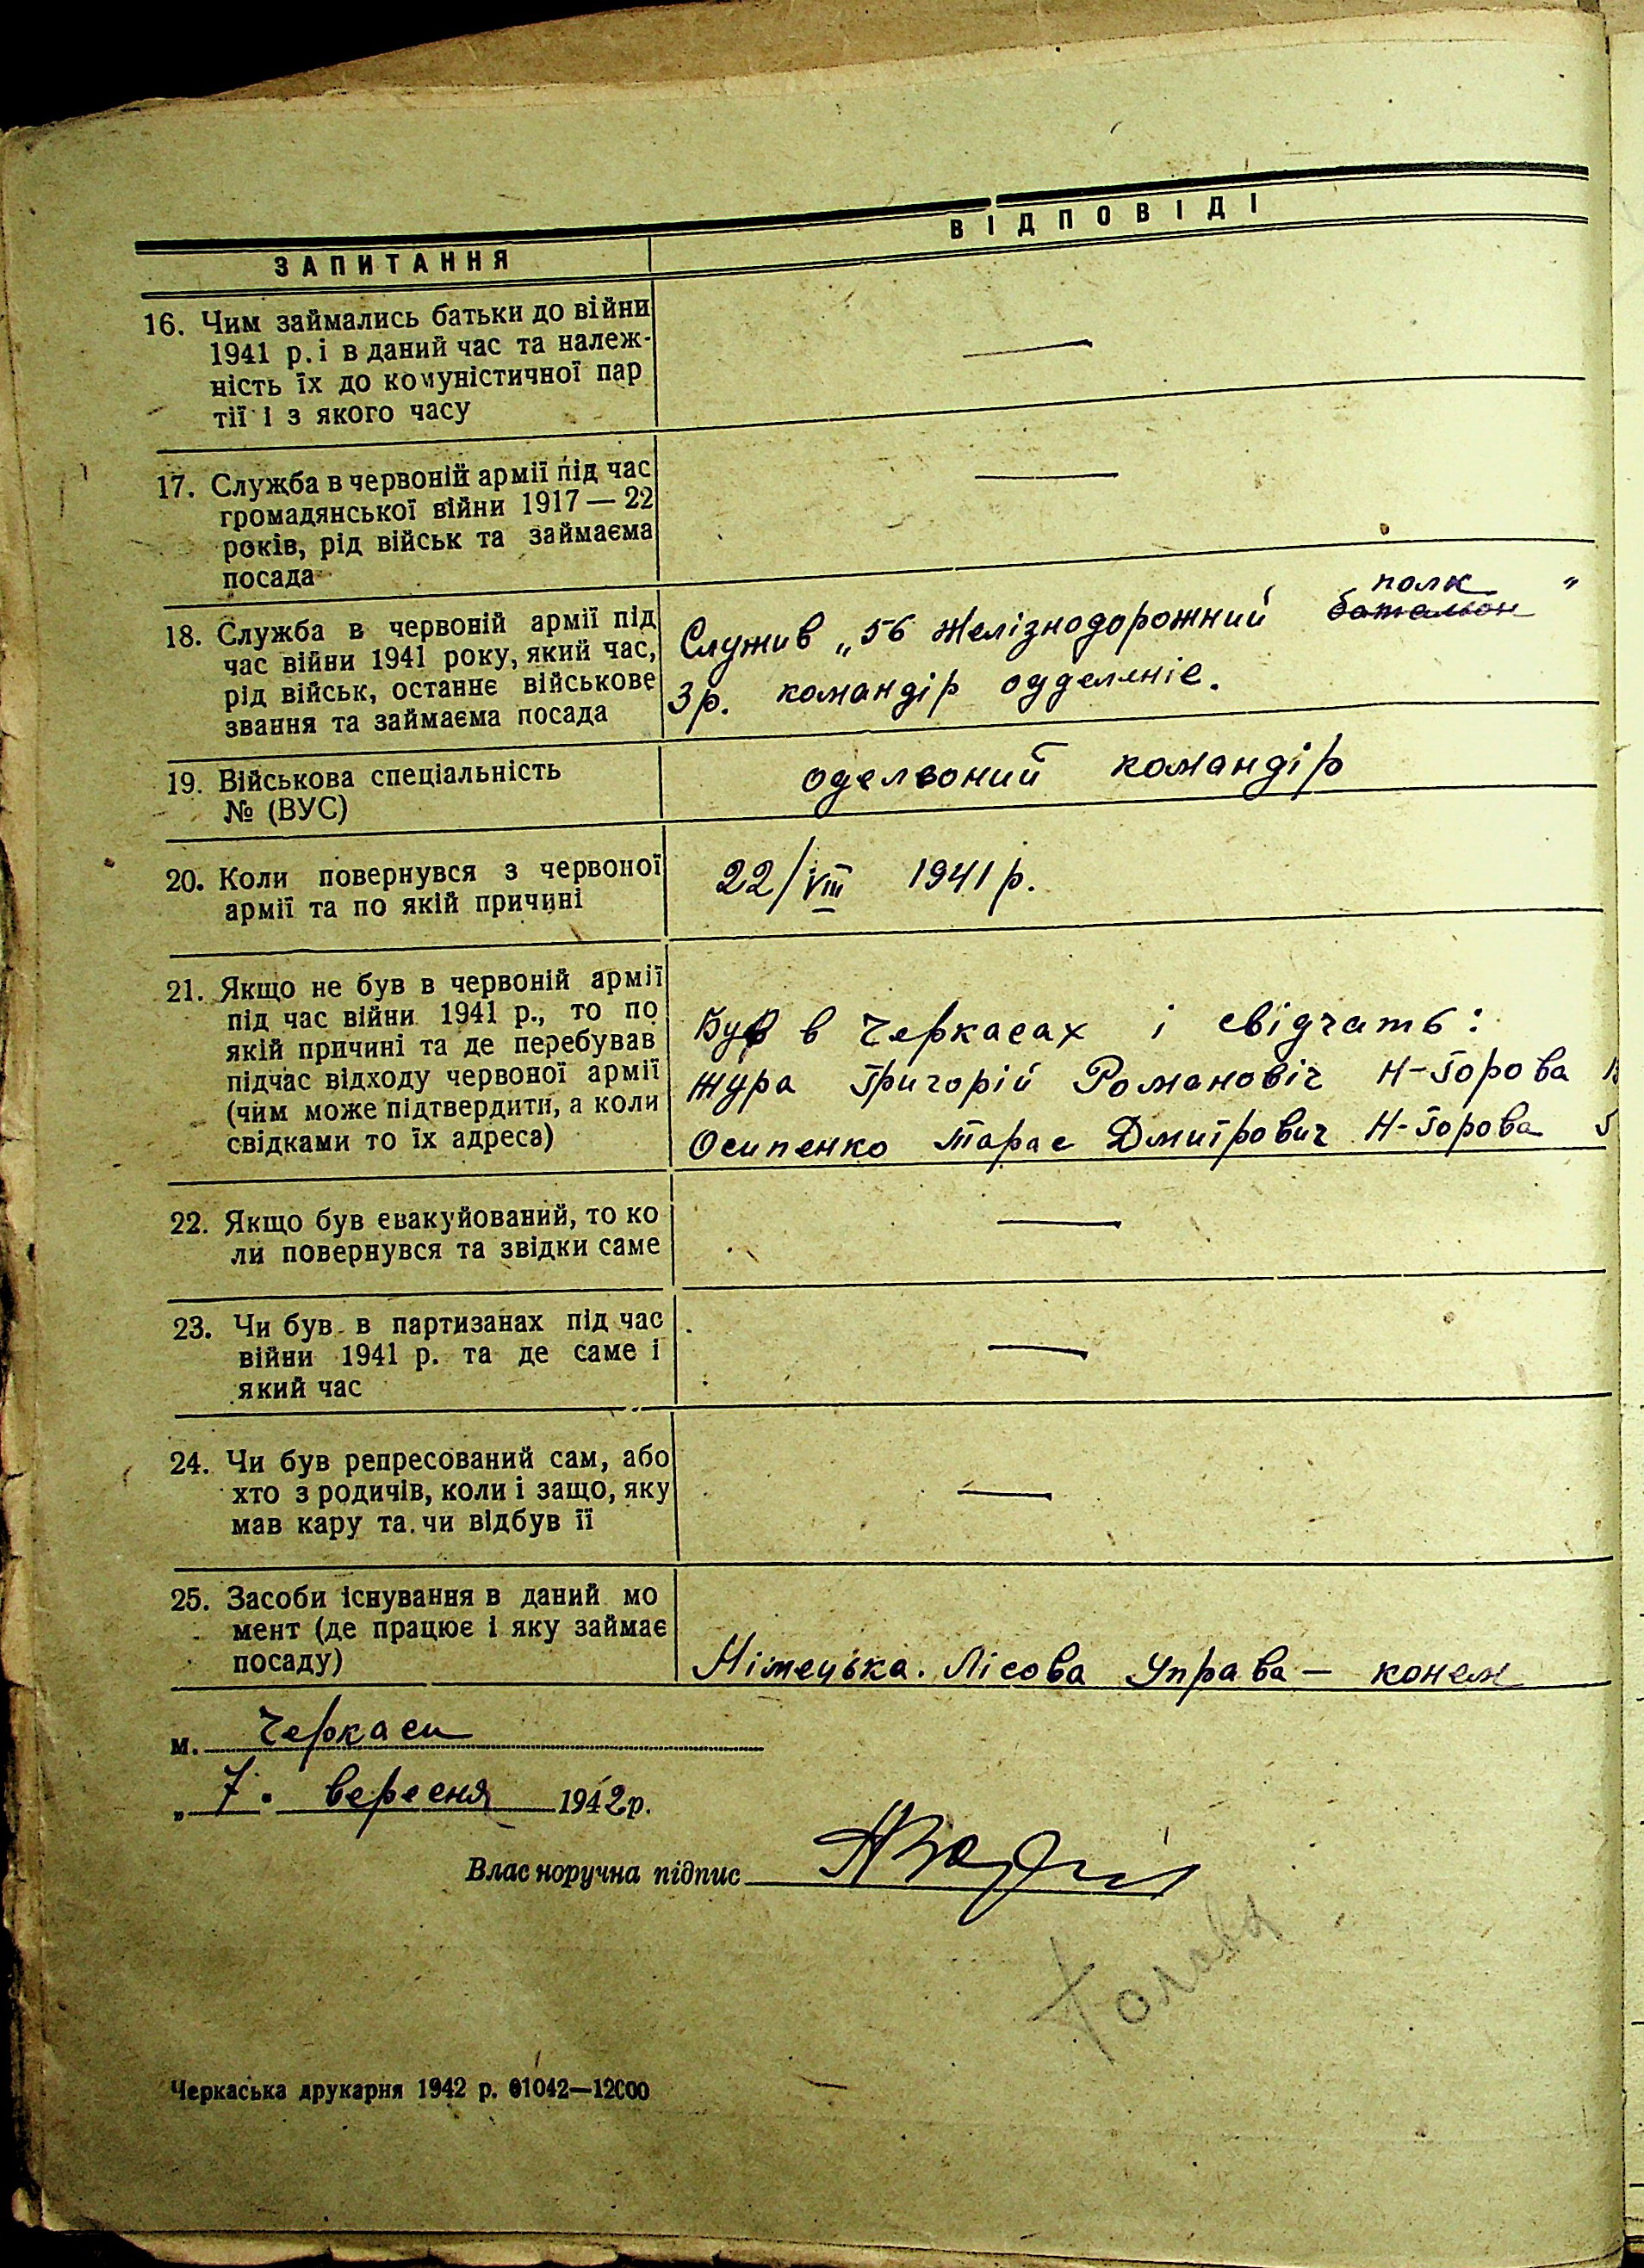 ЗАПИТАННЯ
ВІДПОВІДІ
16. Чим займались батьки до війни
1941 р. і в даний час та належ-
ність їх до комуністичної пар
тії і з якого часу
—
17. Служба в червоній армії під час
громадянської війни 1917 — 22
років, рід військ та займаєма
посада
—
18. Служба в червоній армії під
час війни 1941 року, який час,
рід військ, останнє військове
звання та займаєма посада
полк
Служив „56 желізнодорожний баталион "
3 р. командір одделеніє.
19. Військова спеціальність
№ (ВУС)
командір
20. Коли повернувся з червоної
армії та по якій причині
22/VIII 1941 р.
21. Якщо не був в червоній армії
під час війни 1941 р., то по
якій причині та де перебував
підчас відходу червоної армії
(чим може підтвердити, а коли
свідками то їх адреса)
Був в Черкасах і свідчать:
Жура Григорій Романовіч Н-Горова
Осипенко Тарас Дмитрович Н-Горова
22. Якщо був евакуйований, то ко
ли повернувся та звідки саме
—
23. Чи був в партизанах під час
війни 1941 р. та де саме і
який час
—
24. Чи був репресований сам, або
хто з родичів, коли і защо, яку
мав кару та чи відбув її
—
25. Засоби існування в даний мо
мент (де працює і яку займає
посаду)
Німецька. Лісова Управа —
м. Черкаси
„ 7 " вересня 1942 р.
Власноручна підпис
Черкаська друкарня 1942 р. 01042—12000